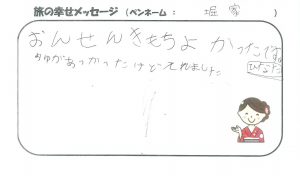 旅の幸せメッセージ（ペンネーム： 堀 家 ）
おんせんきもちよかったです。
ゆがあつかったけどはいれました
ひなた